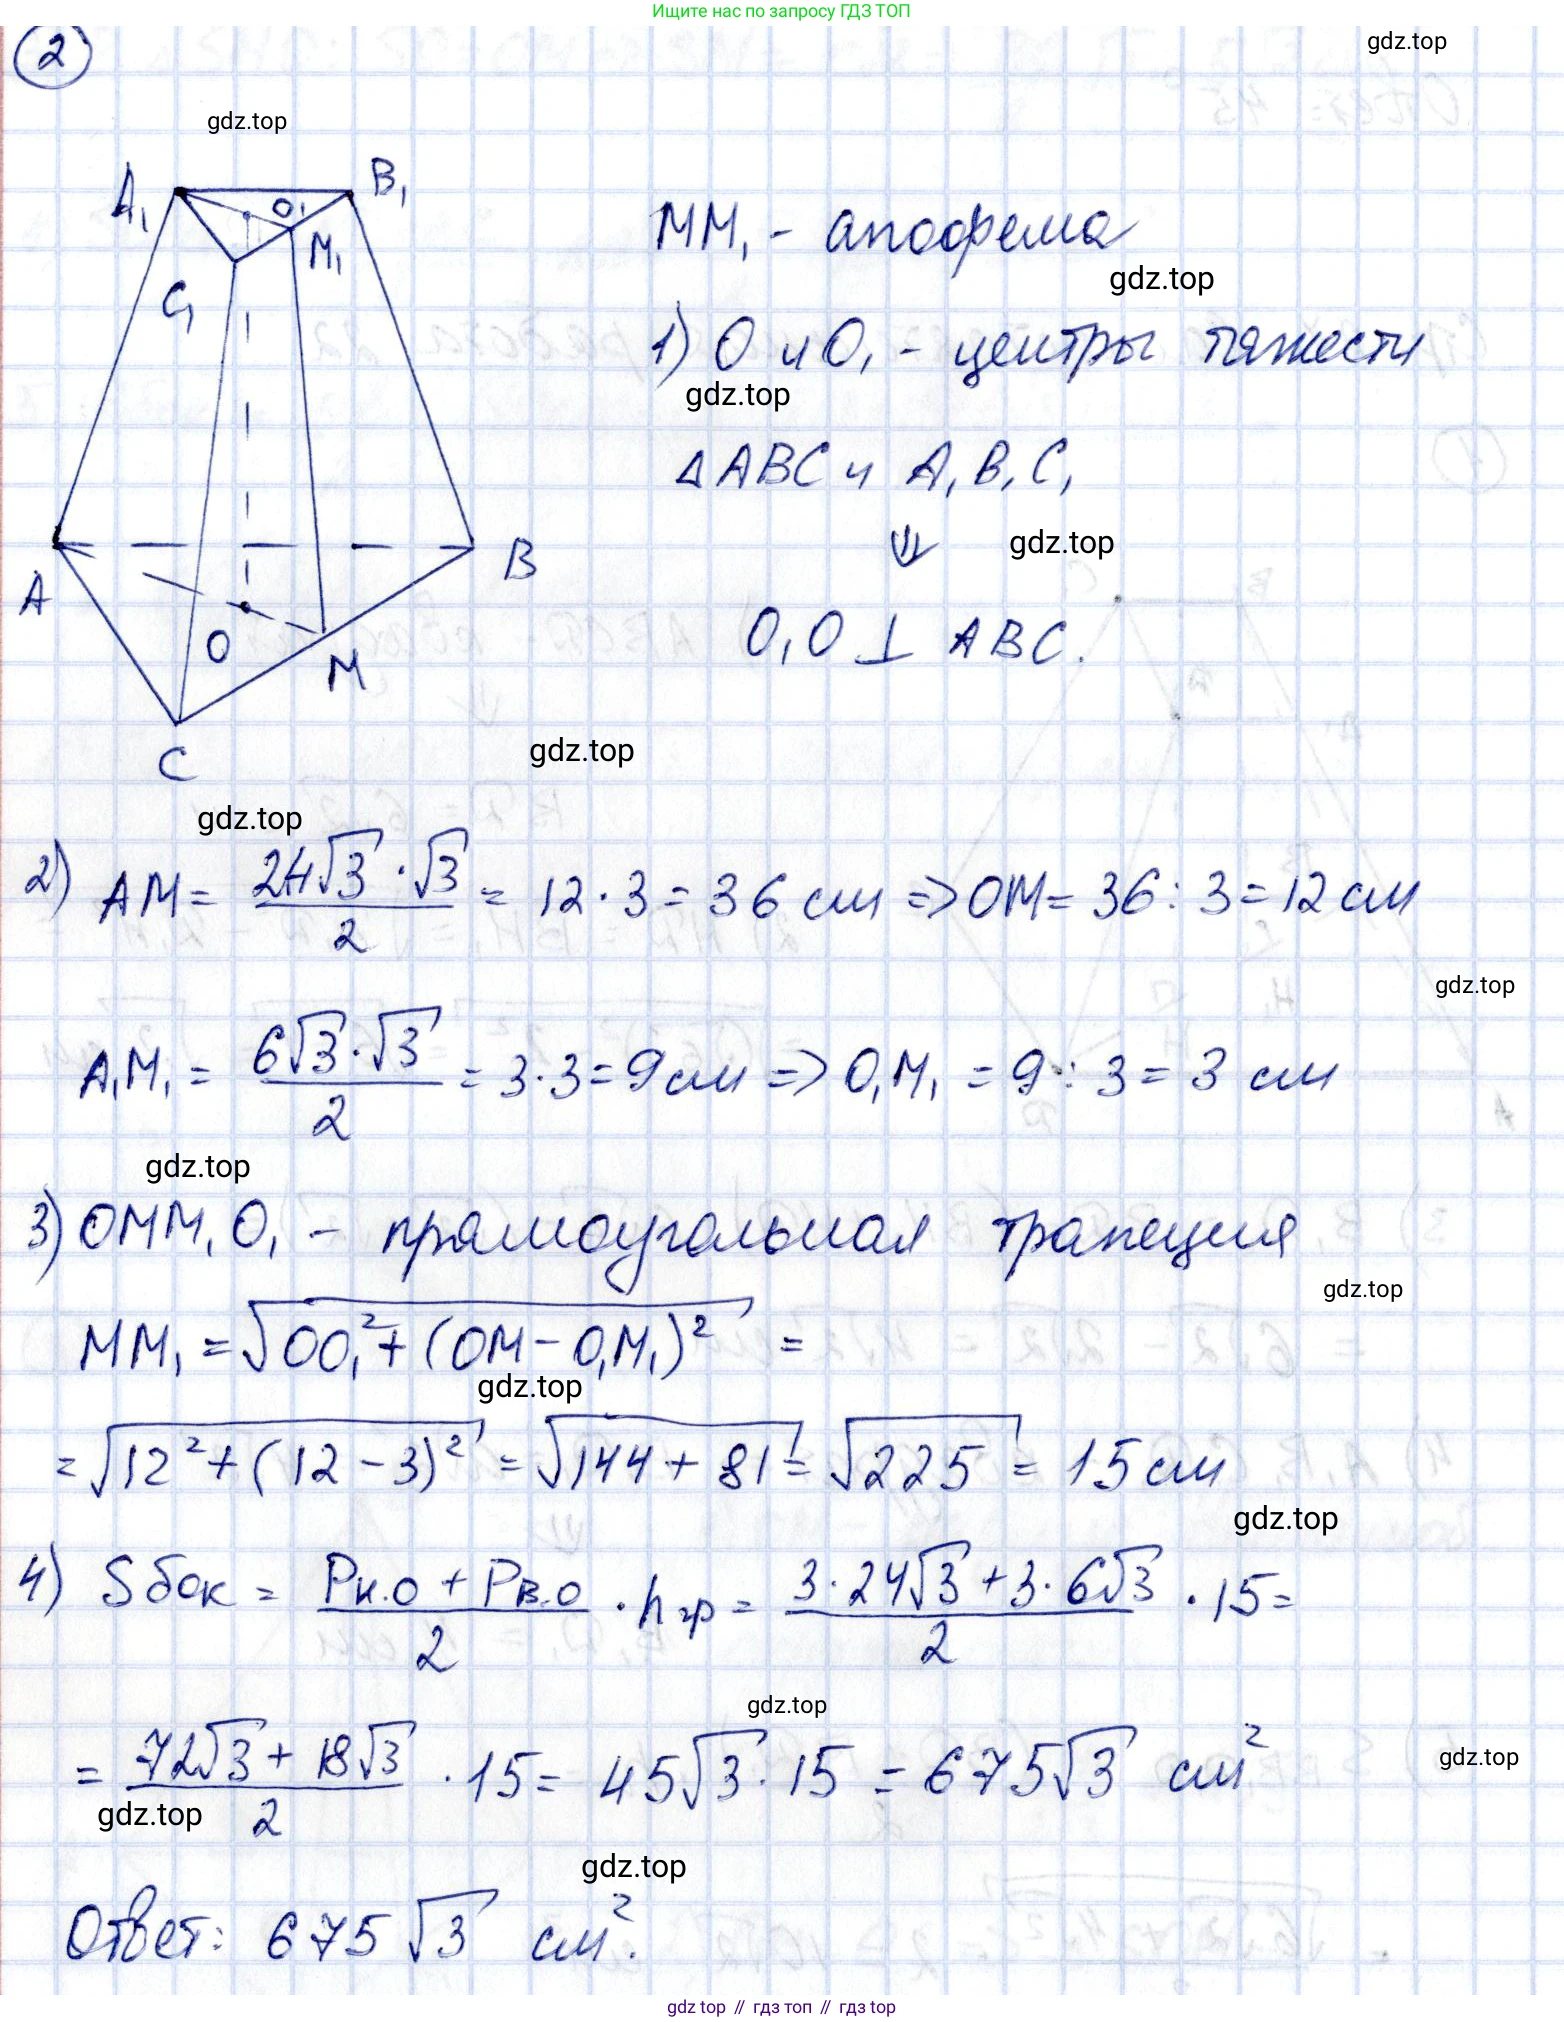 Ищите нас по запросу ГДЗ ТОП
2
gdz.top
gdz.top
A₁
B₁
O₁
M₁
C₁
A
B
O
M
C
MM₁ - апофема
gdz.top
1) O и O₁ - центры тяжести
gdz.top
△ABC и A₁B₁C₁
⇓
gdz.top
O₁O ⊥ ABC.
gdz.top
gdz.top
2) AM = (24√3 · √3)/2 = 12 · 3 = 36 см => OM = 36 : 3 = 12 см
gdz.top
A₁M₁ = (6√3 · √3)/2 = 3 · 3 = 9 см => O₁M₁ = 9 : 3 = 3 см
gdz.top
3) OMM₁O₁ - прямоугольная трапеция
gdz.top
MM₁ = √(OO₁² + (OM - O₁M₁)²) =
gdz.top
= √(12² + (12 - 3)²) = √(144 + 81) = √225 = 15 см
gdz.top
4) Sбок = (Pн.о + Pв.о)/2 · hгр = (3 · 24√3 + 3 · 6√3)/2 · 15 =
gdz.top
= (72√3 + 18√3)/2 · 15 = 45√3 · 15 = 675√3 см²
gdz.top
gdz.top
gdz.top
Ответ: 675√3 см².
gdz top // гдз топ // гдз top